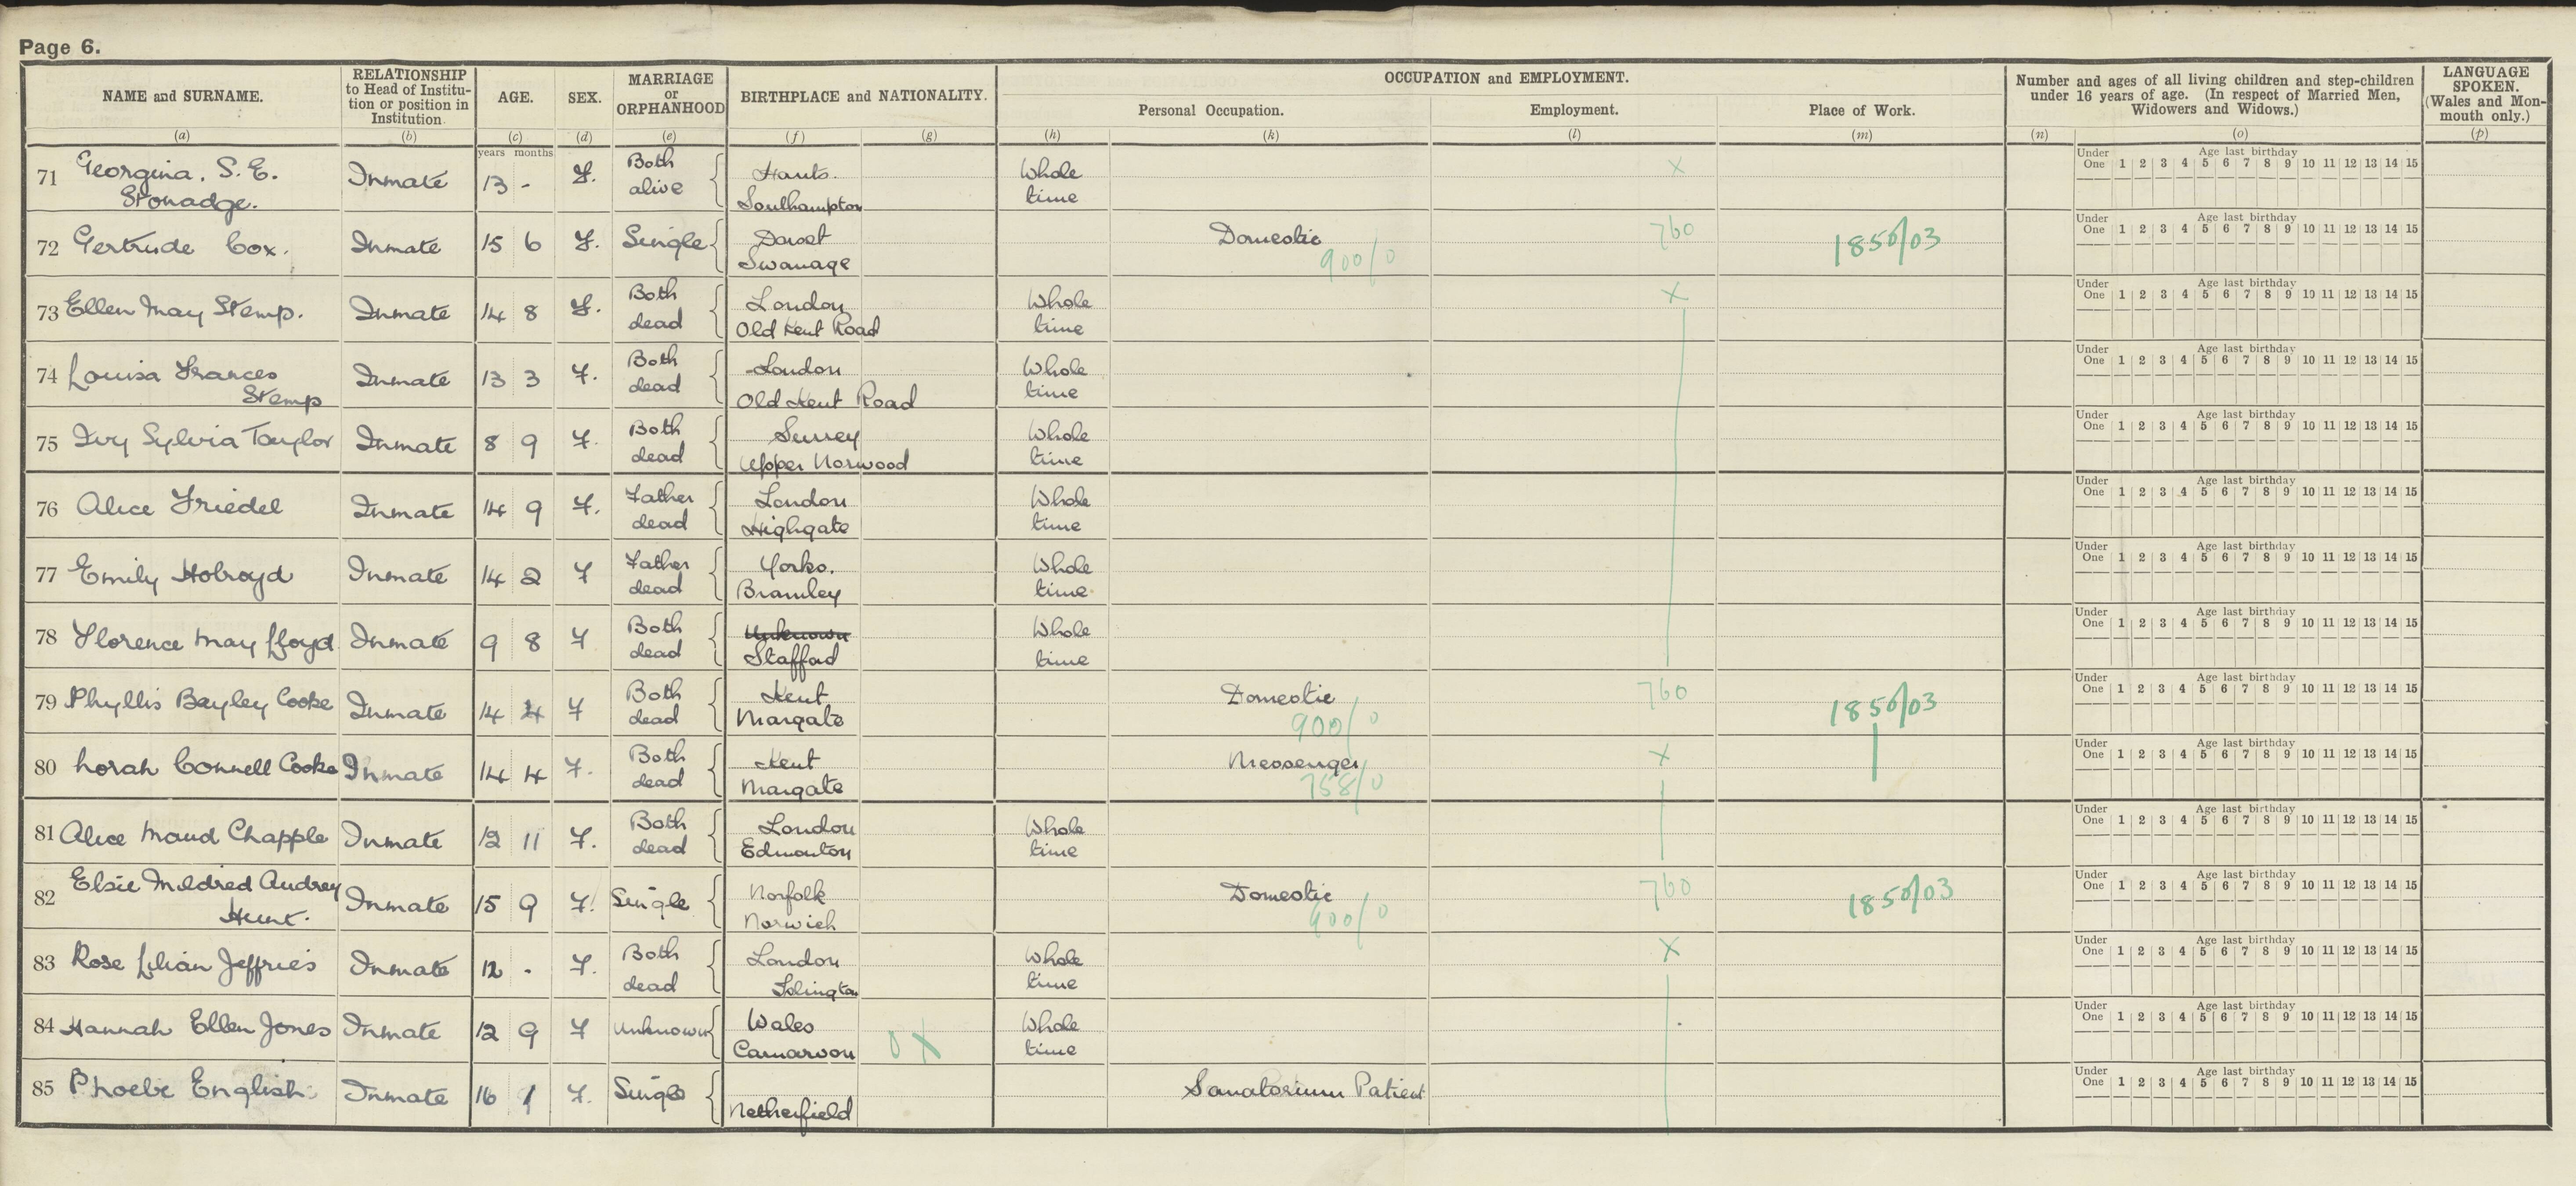 Page 6.
NAME and SURNAME.
RELATIONSHIP
to Head of Institu-
tion or position in
Institution.
AGE.
SEX.
MARRIAGE
or
ORPHANHOOD
BIRTHPLACE and NATIONALITY.
OCCUPATION and EMPLOYMENT.
Personal Occupation.
Employment.
Place of Work.
Number and ages of all living children and step-children
under 16 years of age. (In respect of Married Men,
Widowers and Widows.)
LANGUAGE
SPOKEN.
(Wales and Mon-
mouth only.)
(a) (b) (c) (d) (e) (f) (g) (h) (k) (l) (m) (n) (o) (p)
years months
71 Georgina. S. E. Inmate 13 - F. Both Hants. Whole X
Stonadge. alive Southampton time
Under One 1 2 3 4 5 6 7 8 9 10 11 12 13 14 15 Age last birthday
72 Gertrude Cox. Inmate 15 6 F. Single Dorset Domestic 760 1850/03
Swanage 900/0
Under One 1 2 3 4 5 6 7 8 9 10 11 12 13 14 15 Age last birthday
73 Ellen May Stemp. Inmate 14 8 F. Both London Whole X
dead Old Kent Road time
Under One 1 2 3 4 5 6 7 8 9 10 11 12 13 14 15 Age last birthday
74 Louisa Frances Inmate 13 3 F. Both London Whole
Stemp dead Old Kent Road time
Under One 1 2 3 4 5 6 7 8 9 10 11 12 13 14 15 Age last birthday
75 Ivy Sylvia Taylor Inmate 8 9 F. Both Surrey Whole
dead Upper Norwood time
Under One 1 2 3 4 5 6 7 8 9 10 11 12 13 14 15 Age last birthday
76 Alice Friedel Inmate 14 9 F. Father London Whole
dead Highgate time
Under One 1 2 3 4 5 6 7 8 9 10 11 12 13 14 15 Age last birthday
77 Emily Holroyd Inmate 14 2 F Father Yorks. Whole
dead Bramley time
Under One 1 2 3 4 5 6 7 8 9 10 11 12 13 14 15 Age last birthday
78 Florence May Lloyd Inmate 9 8 F Both Unknown Whole
dead Stafford time
Under One 1 2 3 4 5 6 7 8 9 10 11 12 13 14 15 Age last birthday
79 Phyllis Bayley Cooke Inmate 14 4 F Both Kent Domestic 760 1850/03
dead Margate 900/0
Under One 1 2 3 4 5 6 7 8 9 10 11 12 13 14 15 Age last birthday
80 Norah Connell Cooke Inmate 14 4 F. Both Kent Messenger X
dead Margate 758/0
Under One 1 2 3 4 5 6 7 8 9 10 11 12 13 14 15 Age last birthday
81 Alice Maud Chapple Inmate 12 11 F. Both London Whole
dead Edmonton time
Under One 1 2 3 4 5 6 7 8 9 10 11 12 13 14 15 Age last birthday
82 Elsie Mildred Audrey Inmate 15 9 F. Single Norfolk Domestic 760 1850/03
Hunt. Norwich 900/0
Under One 1 2 3 4 5 6 7 8 9 10 11 12 13 14 15 Age last birthday
83 Rose Lilian Jeffries Inmate 12 - F. Both London Whole X
dead Islington time
Under One 1 2 3 4 5 6 7 8 9 10 11 12 13 14 15 Age last birthday
84 Hannah Ellen Jones Inmate 12 9 F Unknown Wales Whole
Carnarvon 0 X time
Under One 1 2 3 4 5 6 7 8 9 10 11 12 13 14 15 Age last birthday
85 Phoebe English Inmate 16 1 F. Single Sanatorium Patient
Netherfield
Under One 1 2 3 4 5 6 7 8 9 10 11 12 13 14 15 Age last birthday